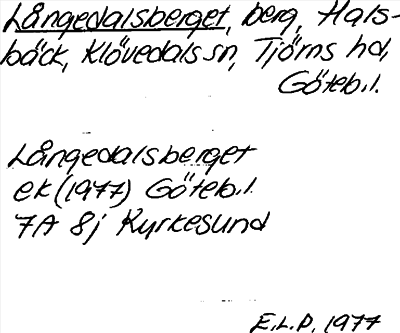 Långedalsberget, berg, Hals-
bäck, Klövedals sn, Tjörns hd,
Göteb.l.
Långedalsberget
ek (1977) Göteb.l.
7A 8j Kyrkesund
E.L.P. 1977